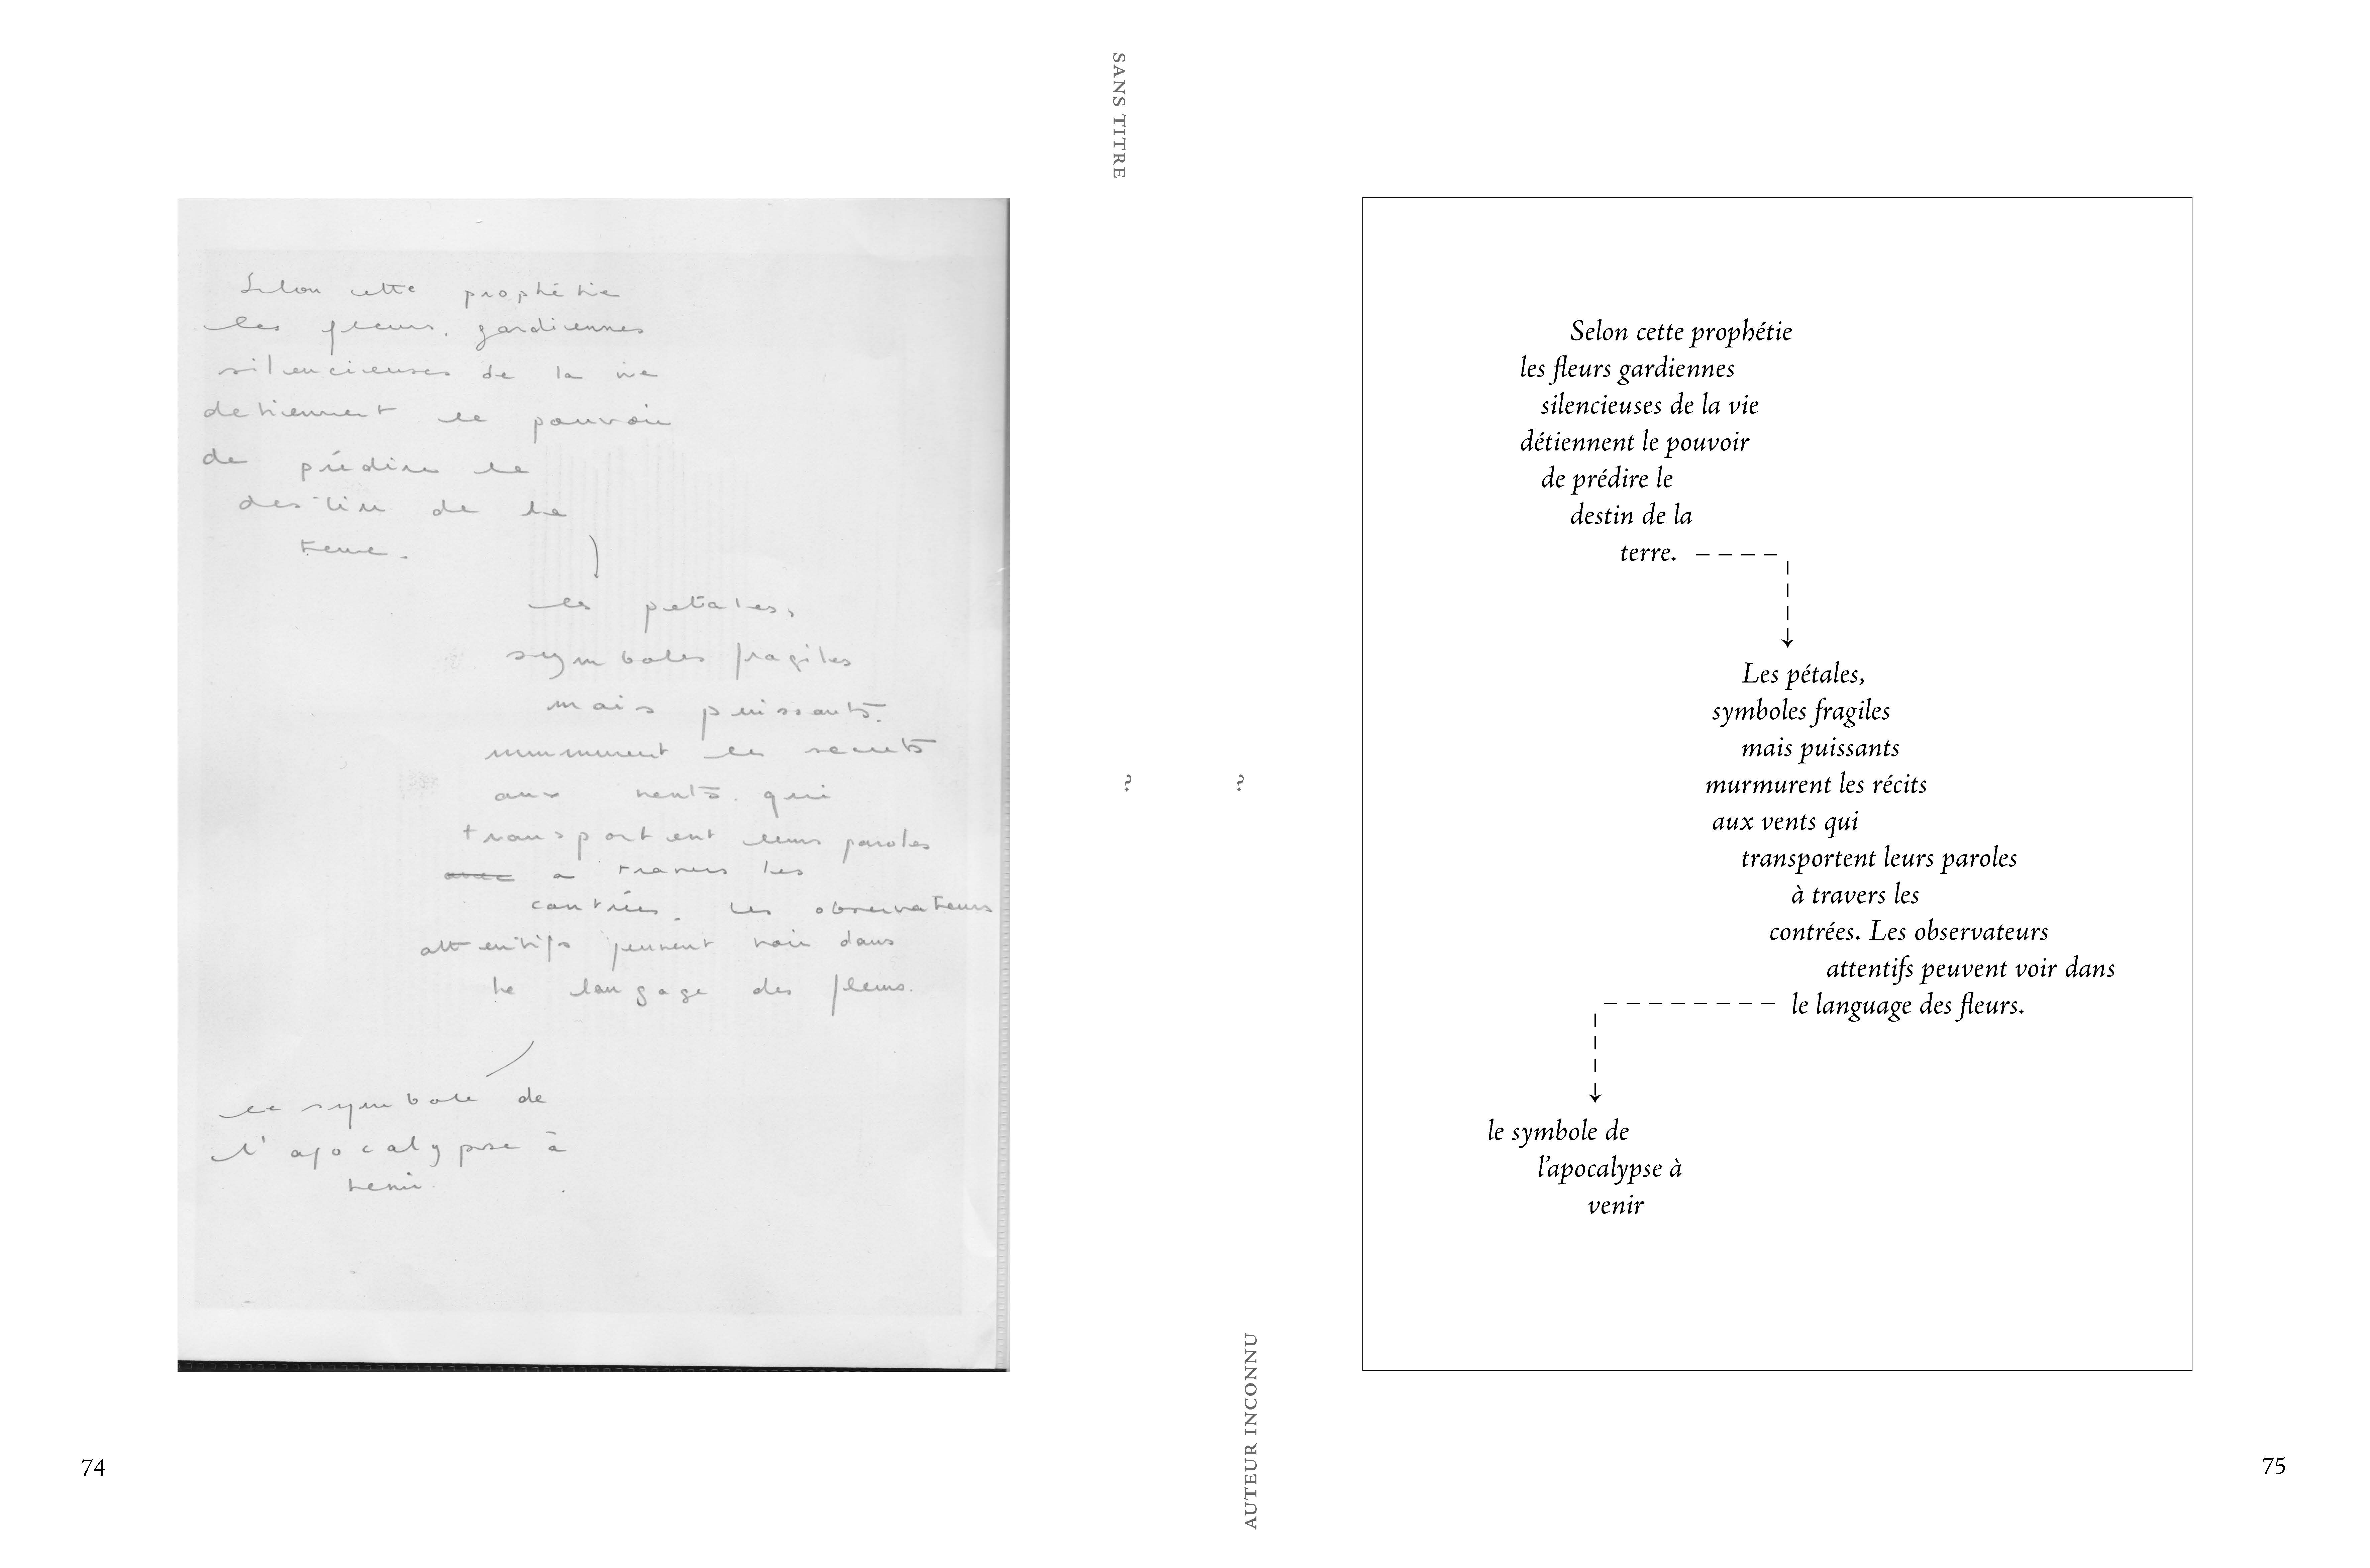 SANS TITRE
Selon cette prophétie
les fleurs, gardiennes
silencieuses de la vie
detiennent le pouvoir
de prédire le
destin de la
terre.
les petales,
symboles fragiles
mais puissants.
murmurent les secrets
aux vents. qui
transportent leurs paroles
avec a travers les
contrées. les observateurs
attentifs peuvent voir dans
le langage des fleurs.
le symbole de
l'apocalypse à
venir.
74
?
?
AUTEUR INCONNU
Selon cette prophétie
les fleurs gardiennes
silencieuses de la vie
détiennent le pouvoir
de prédire le
destin de la
terre.
Les pétales,
symboles fragiles
mais puissants
murmurent les récits
aux vents qui
transportent leurs paroles
à travers les
contrées. Les observateurs
attentifs peuvent voir dans
le language des fleurs.
le symbole de
l'apocalypse à
venir
75